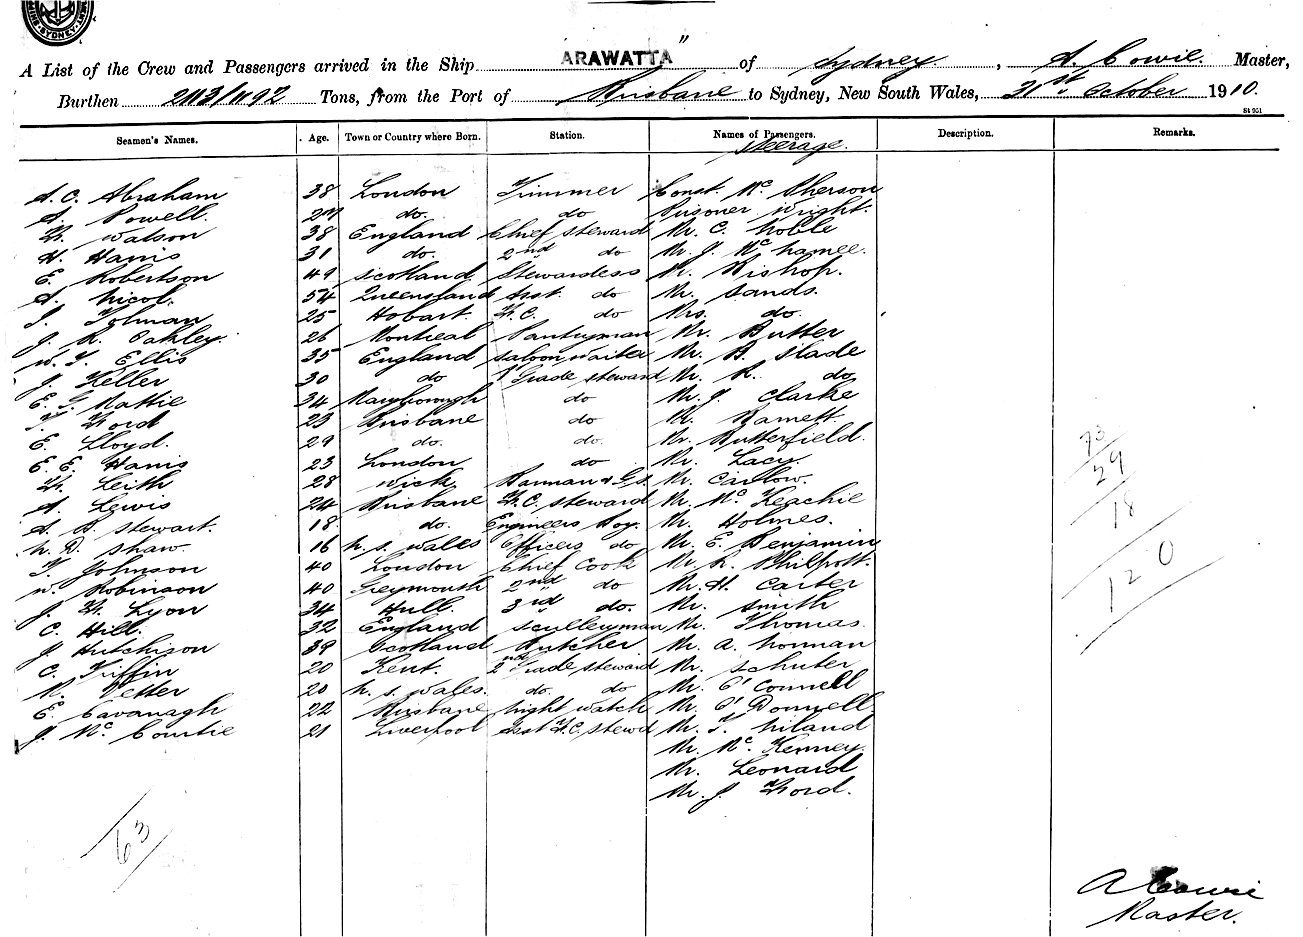 SYDNEY
A List of the Crew and Passengers arrived in the Ship "ARAWATTA" of Sydney, A. Cowie. Master,
Burthen 2113/1192 Tons, from the Port of Brisbane to Sydney, New South Wales, 31st October 1910.
St 951
Seamen's Names. Age. Town or Country where Born. Station. Names of Passengers. Description. Remarks.
Steerage.
A. C. Abraham 38 London Trimmer Const. McPherson
A. Powell. 27 do. do Prisoner Wright.
H. Watson 38 England Chief Steward Mr. C. Noble
H. Harris 31 do. 2nd do Mr. J. McNamee.
E. Robertson 49 Scotland Stewardess Mr. Bishop.
A. Nicol. 54 Queensland Asst. do Mr. Sands.
J. Tolman 25 Hobart. F.C. do Mrs. do.
J. R. Oakley. 26 Montreal Pantryman Mr. Butter
W. J. Ellis 35 England Saloon Waiter Mr. B. Slade
J. Keller 30 do 1 Grade Steward Mr. R. do
E. G. Mattie 34 Maryborough do Mr. J. Clarke
T. Ford 23 Brisbane do Mr. Barnett.
E. Lloyd. 29 do. do. Mr. Butterfield.
E. E. Harris 23 London do Mr. Lacy.
H. Leith 28 Wick. Barman & G.S. Mr. Carlow.
A. Lewis 24 Brisbane F.C. Steward Mr. McKeachie
A. B. Stewart. 18 do. Engineers Boy. Mr. Holmes.
N. D. Shaw. 16 N. S. Wales Officers do Mr. E. Benjamin
T. Johnson 40 London Chief Cook Mr. R. Philpott.
W. Robinson 40 Greymouth 2nd do Mr. H. Carter
J. H. Lyon 34 Hull. 3rd do. Mr. Smith
C. Hill. 32 England Sculleryman Mr. Thomas.
J. Hutchison 39 Scotland Butcher Mr. A. Norman
C. Tiffin 20 Kent. 2nd Grade Steward Mr. Schuter
R. Vetter 20 N. S. Wales. do. do Mr. O'Connell
E. Cavanagh 22 Brisbane Night Watch Mr. O'Donnell
J. McCourtie 21 Liverpool Asst F.C. Stewd Mr. T. Niland
Mr. McKenney.
Mr. Leonard
Mr. J. Ford.
73
29
18
120
63
A Cowie
Master.